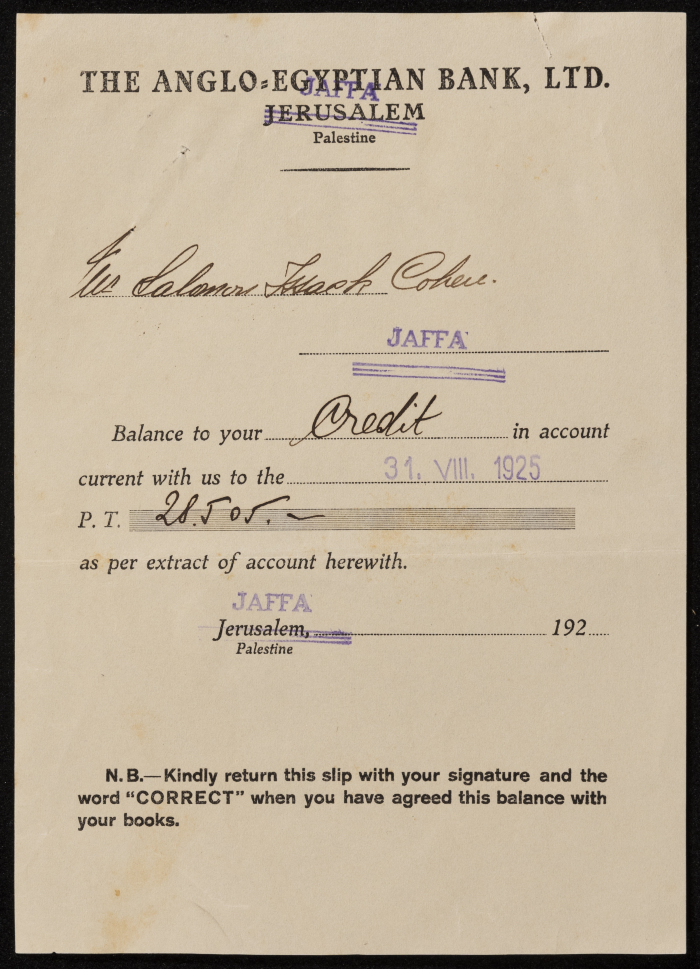 THE ANGLO-EGYPTIAN BANK, LTD.
JAFFA
JERUSALEM
Palestine
Mr Salomon Issack Cohen.
JAFFA
Balance to your Credit in account
current with us to the 31. VIII. 1925
P. T. 28.505.–
as per extract of account herewith.
JAFFA
Jerusalem, 192
Palestine
N.B.—Kindly return this slip with your signature and the
word "CORRECT" when you have agreed this balance with
your books.